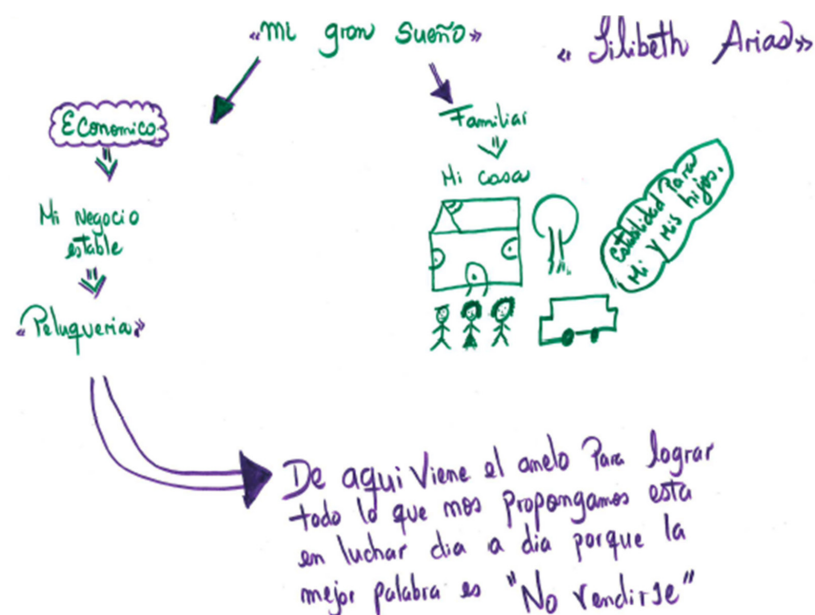 «Mi gran Sueño»
« Lilibeth Arias»
Economico
Mi Negocio
estable
«Peluqueria»
Familiar
Mi casa
Estabilidad Para
Mi Y Mis hijos.
De aqui Viene el anelo Para lograr
todo lo que nos propongamos esta
en luchar dia a dia porque la
mejor palabra es "No rendirse"